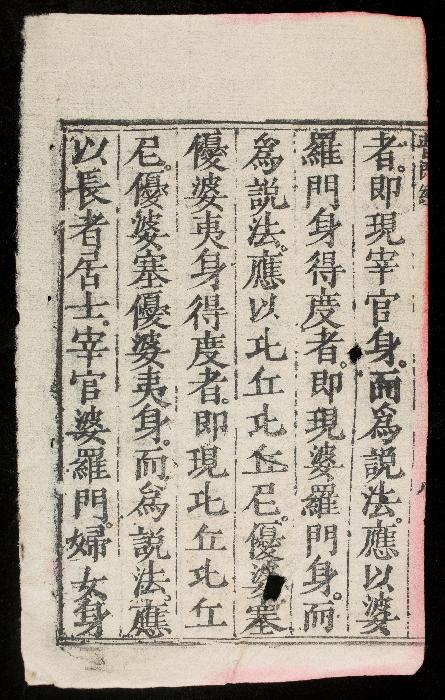 者。即現宰官身。而為説法。應以婆
羅門身得度者。即現婆羅門身。而
為説法。應以比丘比丘尼。優婆塞
優婆夷身得度者。即現比丘比丘
尼。優婆塞優婆夷身。而為説法。應
以長者居士。宰官婆羅門。婦女身